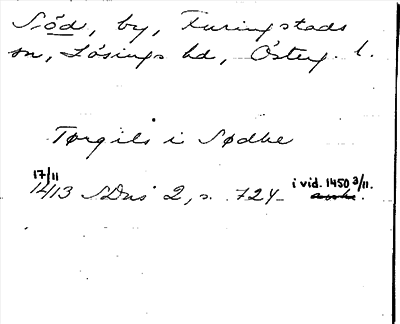 Söd, by, Furingstads
sn, Lösings hd, Österg. l.
Törgils i Sødhe
17/11
1413 SDns 2, s. 724 i vid. 1450 3/11.